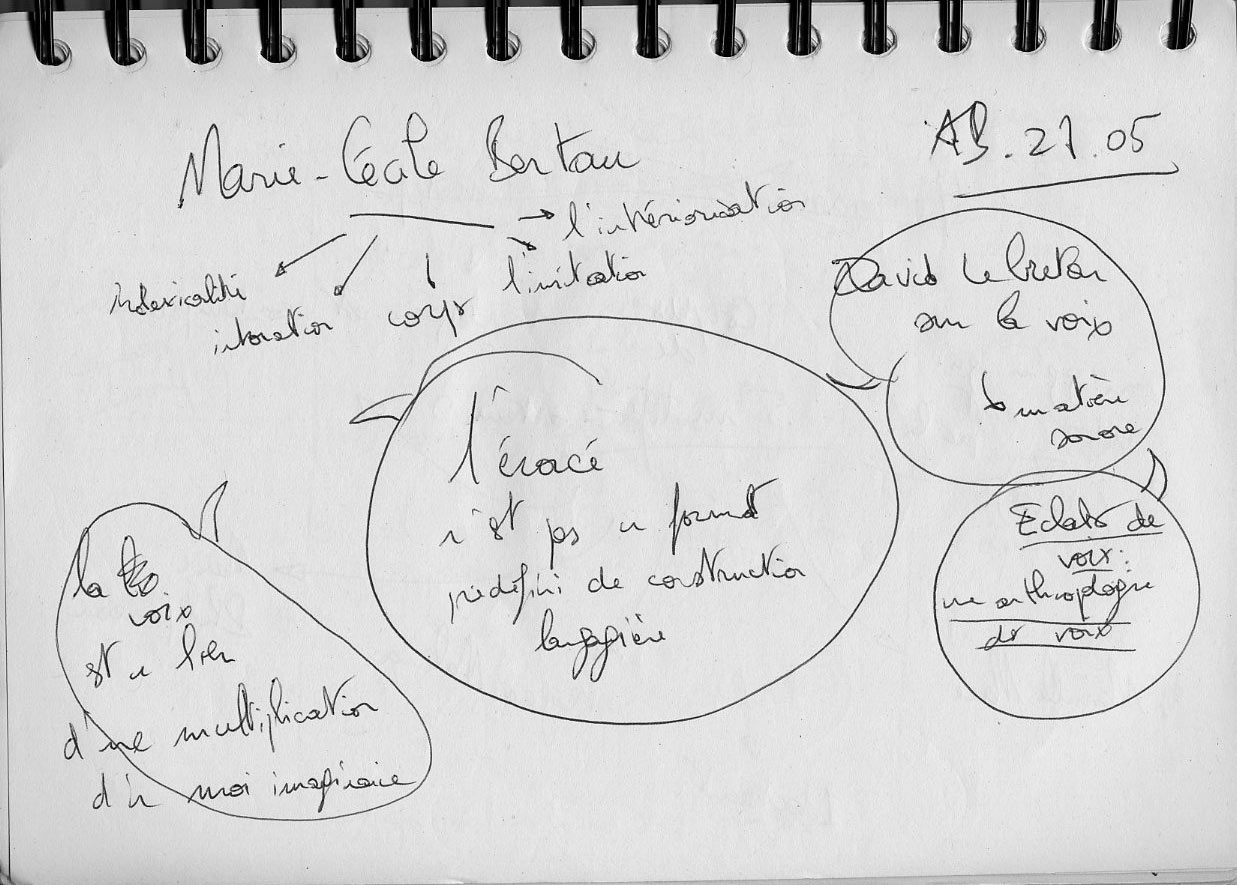 Marie-Cécile Bertau
AB. 27.05
→ l'intériorisation
indexicalité
intonation
corps
l'imitation
David Le Breton
sur la voix
matière
sonore
l'énoncé
n'est pas un format
prédéfini de construction
langagière
Eclats de
voix:
une anthropologie
des voix
la
voix
est un lieu
d'une multiplication
d'un moi imaginaire